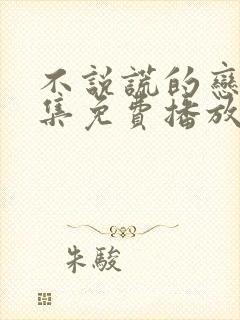 不説謊的戀
集免費播放
朱駿